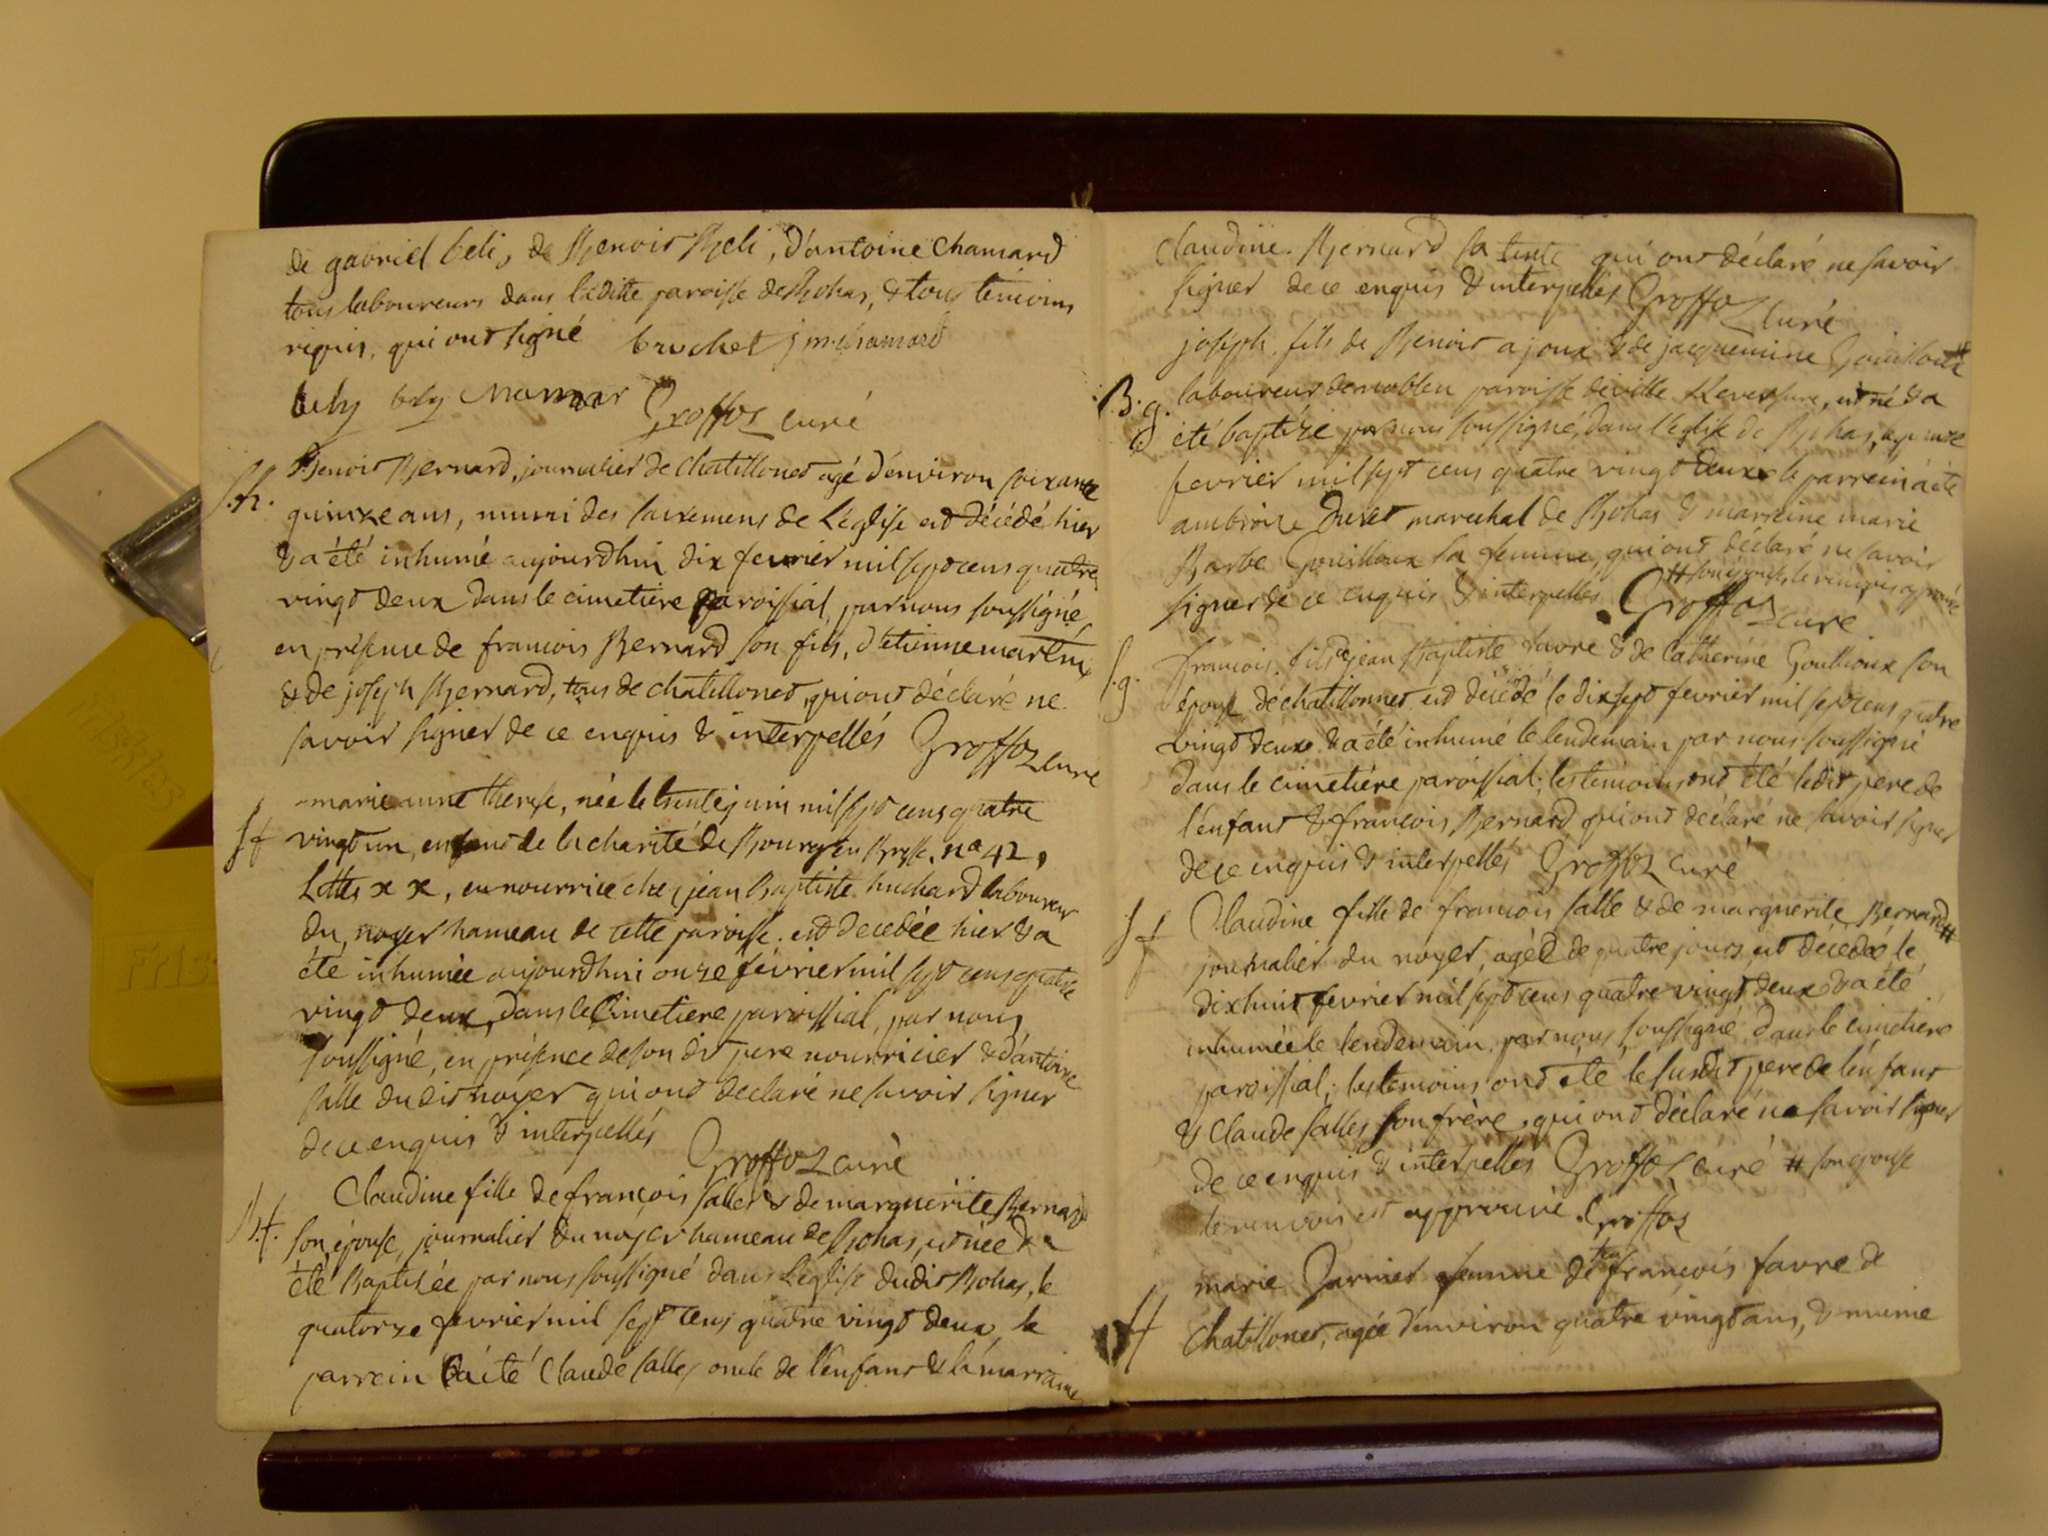 de gabriel beli, de Benoit Beli, d'antoine Chamard
tous laboureurs dans laditte paroisse de Bohas, & tous temoins
requis, qui ont signé bruchet j m chamard
bely bely Groffoz curé
S.h. Benoit Bernard, journalier de chatillonet agé d'environ soixante
quinze ans, muni des sacremens de L'église est décédé hier
& a été inhumé aujourdhui dix fevrier mil sept cens quatre
vingt deux dans le cimetiere paroissial, par nous soussigné,
en présence de francois Bernard son fils, d'etienne martin
& de joseph Bernard, tous de chatillonet, qui ont déclaré ne
savoir signer de ce enquis & interpellés Groffoz curé
marie anne therese, née le trente juin mil sept cens quatre
S f vingt un, enfant de la charité de Bourg en Bresse, no 42,
Lettes x x, en nourrice chez jean Baptiste huchard laboureur
du noyer hameau de cette paroisse. est decedée hier & a
été inhumée aujourdhui onze février mil sept cens quatre
vingt deux, dans le Cimetiere paroissial, par nous
soussigné, en présence de son dit pere nourricier & d'antoine
salle dudit noyer qui ont declaré ne savoir signer
de ce enquis & interpellés Groffoz curé
Claudine fille de françois salles & de marguerite Bernard
B.f. son épouse, journalier du noyer hameau de Bohas, est née & a
été Baptisée par nous soussigné dans L'église dudit Bohas, le
quatorze fevrier mil sept cens quatre vingt deux, le
parrein a été Claude salles oncle de l'enfant & la marraine
Claudine Bernard sa tente qui ont déclaré ne savoir
signer de ce enquis & interpellés Groffoz curé
joseph, fils de Benoit ajoux & de jacquemine Gouilloux #
B.g. laboureur de noblen paroisse de ville Reversure, est né & a
été baptizé par nous soussigné, dans l'église de Bohas, le
fevrier mil sept cens quatre vingt deux le parrein a été
ambroise Duret marechal de Bohas & marreine marie
Barbe Gouilloux sa femme, qui ont déclaré ne savoir
# son épouse, le renvoi est aprouvé
signer de ce enquis & interpellés Groffoz curé
francois, fils de jean Baptiste favre & de Catherine Goulloux son
S.g. épouse de chatillonnet, est décédé le dix sept fevrier mil sept cens quatre
vingt deux & a été inhumé le lendemain par nous soussigné
dans le cimetière paroissial; les temoins ont été ledit pere de
l'enfant & françois Bernard qui ont declaré ne savoir signer
de ce enquis & interpellés Groffoz curé
S f Claudine fille de francois salle & de marguerite Bernard #
journalier du noyer, agée de quatre jours est décedée le
dix huit fevrier mil sept cens quatre vingt deux & a été
inhumée le lendemain, par nous soussigné, dans le cimetière
paroissial; les temoins ont été le susdit pere de l'enfant
& Claude salles son frère, qui ont déclaré ne savoir signer
de ce enquis & interpellés Groffoz curé # son epouse
le renvoi est approuvé. Groffoz
marie Garnier femme de feu françois favre de
S f Chatillonet, agée d'environ quatre vingt ans, & munie